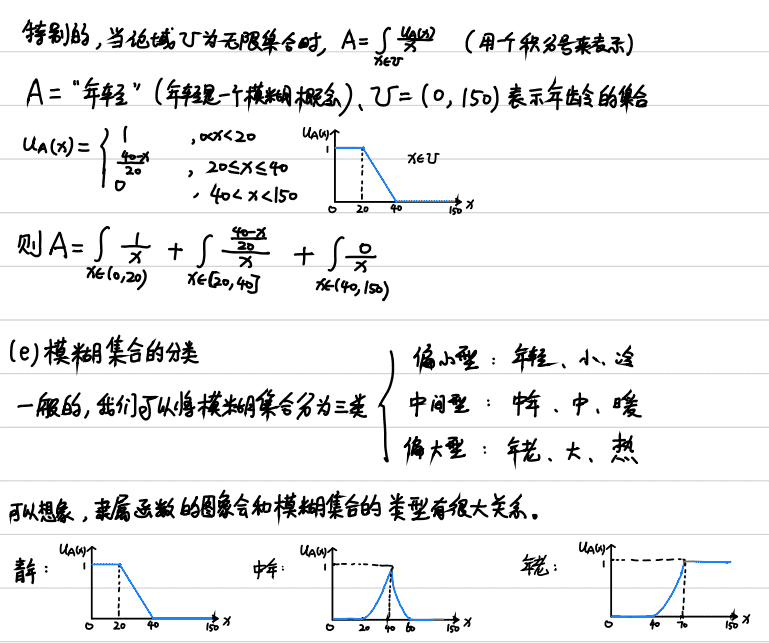 特别的，当论域U为无限集合时，A=∫_{x∈U} u_A(x)/x （用个积分号来表示）
A="年轻"（年轻是一个模糊概念）、U=(0,150)表示年龄的集合
u_A(x)={ 1 , 0<x<20
(40-x)/20 , 20≤x≤40
0 , 40<x<150
u_A(x) 1 0 20 40 150 x x∈U
则A=∫_{x∈(0,20)} 1/x + ∫_{x∈[20,40]} ((40-x)/20)/x + ∫_{x∈(40,150)} 0/x
(e)模糊集合的分类
一般的，我们可以将模糊集合分为三类
偏小型：年轻、小、冷
中间型：中年、中、暖
偏大型：年老、大、热
可以想象，隶属函数的图象会和模糊集合的类型有很大关系。
青年： u_A(x) 1 0 20 40 150 x
中年： u_A(x) 1 0 20 40 60 150 x
年老： u_A(x) 1 0 40 70 150 x